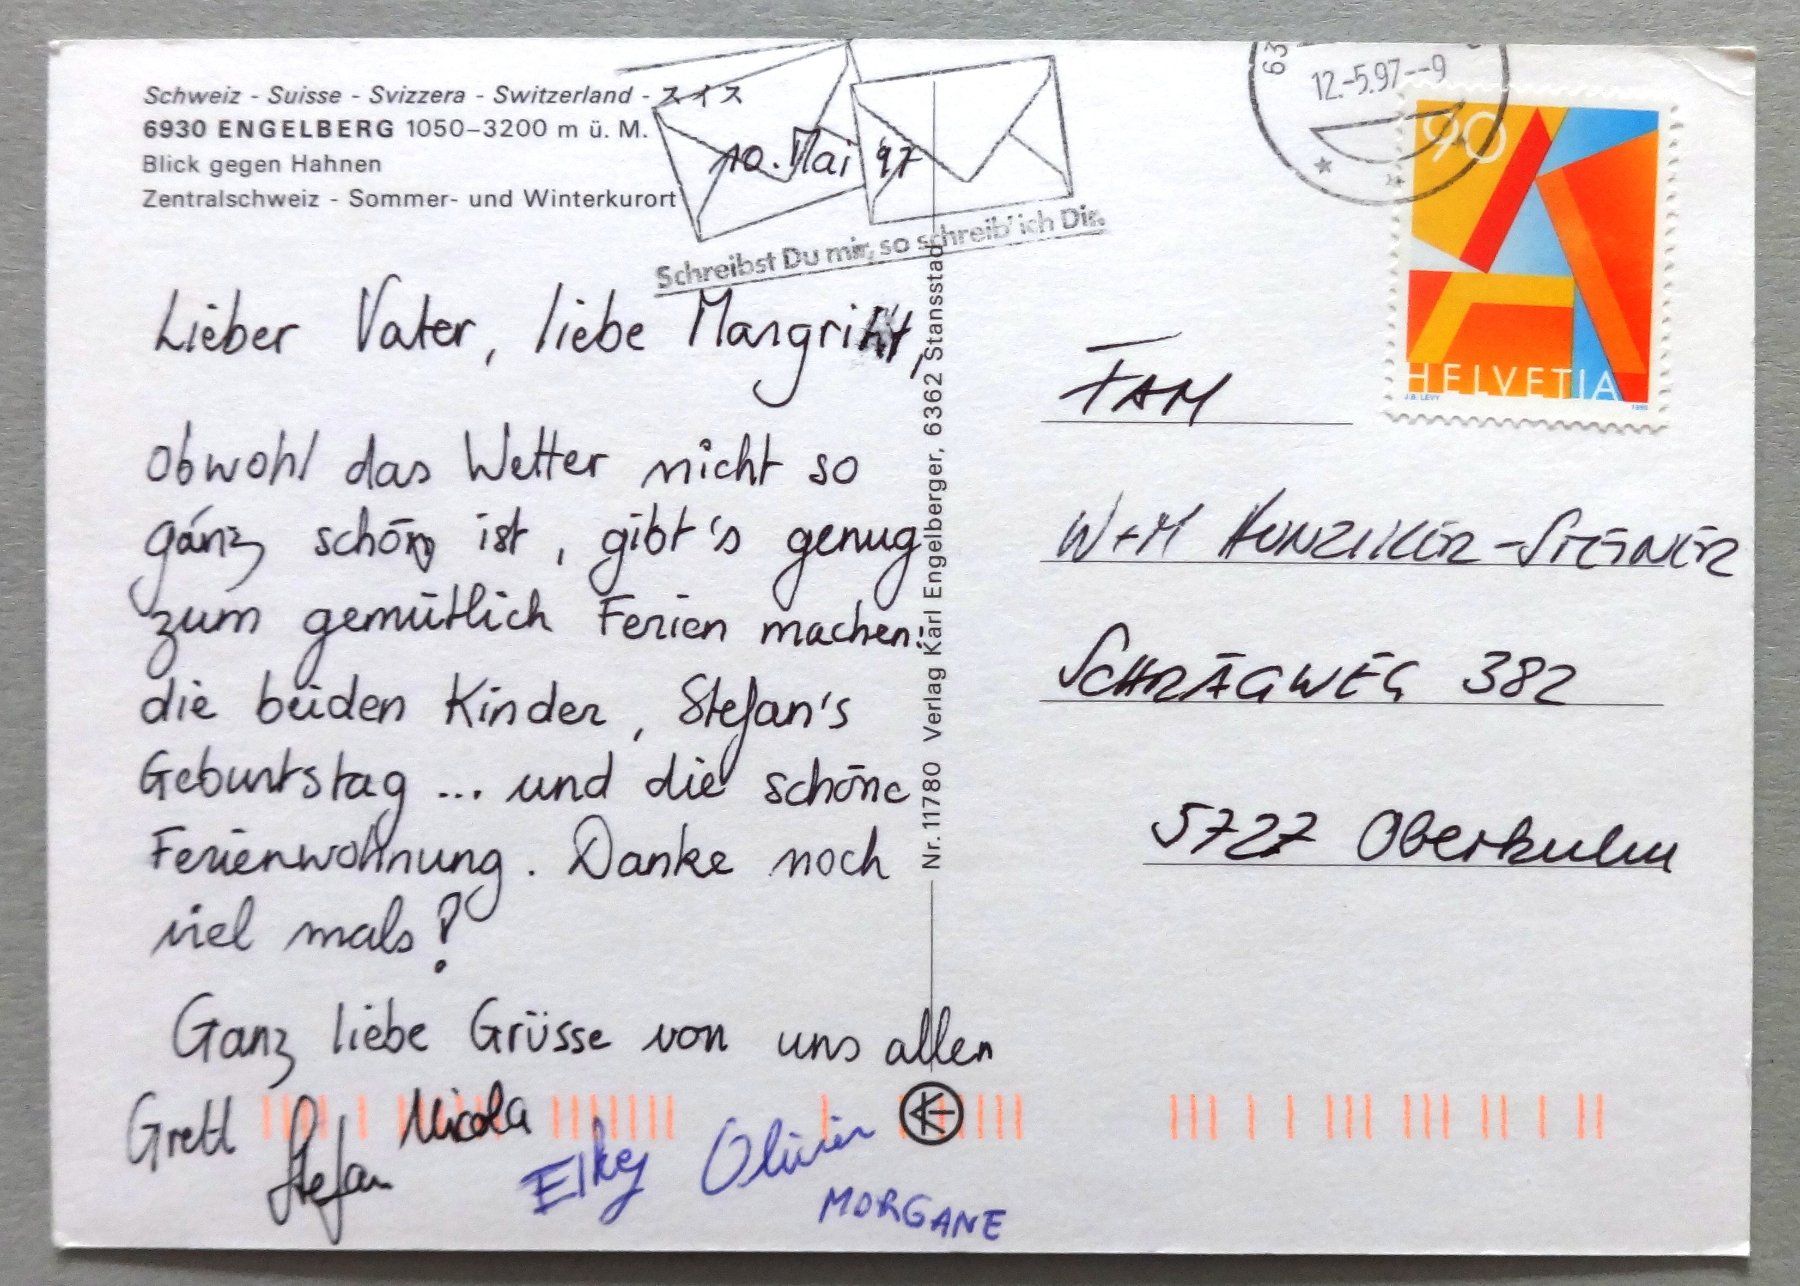 Schweiz - Suisse - Svizzera - Switzerland - スイス
6930 ENGELBERG 1050–3200 m ü. M.
Blick gegen Hahnen
Zentralschweiz - Sommer- und Winterkurort
10. Mai '97
Schreibst Du mir, so schreib' ich Dir.
Lieber Vater, liebe Margritt,
obwohl das Wetter nicht so
ganz schön ist, gibt's genug
zum gemütlich Ferien machen:
die beiden Kinder, Stefan's
Geburtstag ... und die schöne
Ferienwohnung. Danke noch
viel mals!
Ganz liebe Grüsse von uns allen
Gretl Stefan Nicola
Elky Olivier
MORGANE
Nr. 11780 Verlag Karl Engelberger, 6362 Stansstad
63
12.-5.97--9
90
HELVETIA
J.B. LEVY
1995
FAM
W+M HUNZIKER-STEINER
SCHRÄGWEG 382
5727 Oberkulm